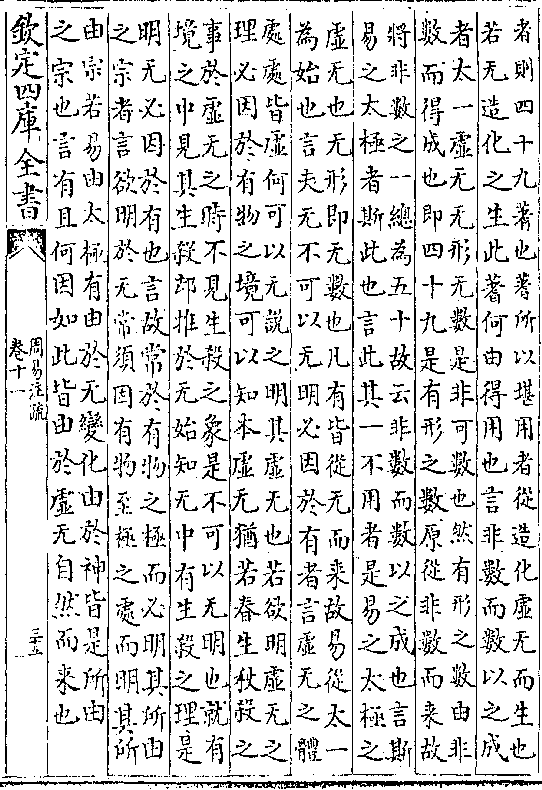 者則四十九蓍也蓍所以堪用者從造化虛无而生也
若无造化之生此蓍何由得用也言非數而數以之成
者太一虛无无形无數是非可數也然有形之數由非
數而得成也即四十九是有形之數原從非數而来故
將非數之一總為五十故云非數而數以之成也言斯
易之太極者斯此也言此其一不用者是易之太極之
虛无也无形即无數也凡有皆從无而来故易從太一
為始也言夫无不可以无明必因於有者言虛无之體
處處皆虛何可以无說之明其虛无也若欲明虛无之
理必因於有物之境可以知本虛无猶若春生秋殺之
事於虛无之時不見生殺之象是不可以无明也就有
境之中見其生殺却推於无始知无中有生殺之理是
明无必因於有也言故常於有物之極而必明其所由
之宗者言欲明於无常須因有物至極之處而明其所
由宗若易由太極有由於无變化由於神皆是所由
之宗也言有且何因如此皆由於虛无自然而来也
欽定四庫全書
周易注疏
卷十一
三十五